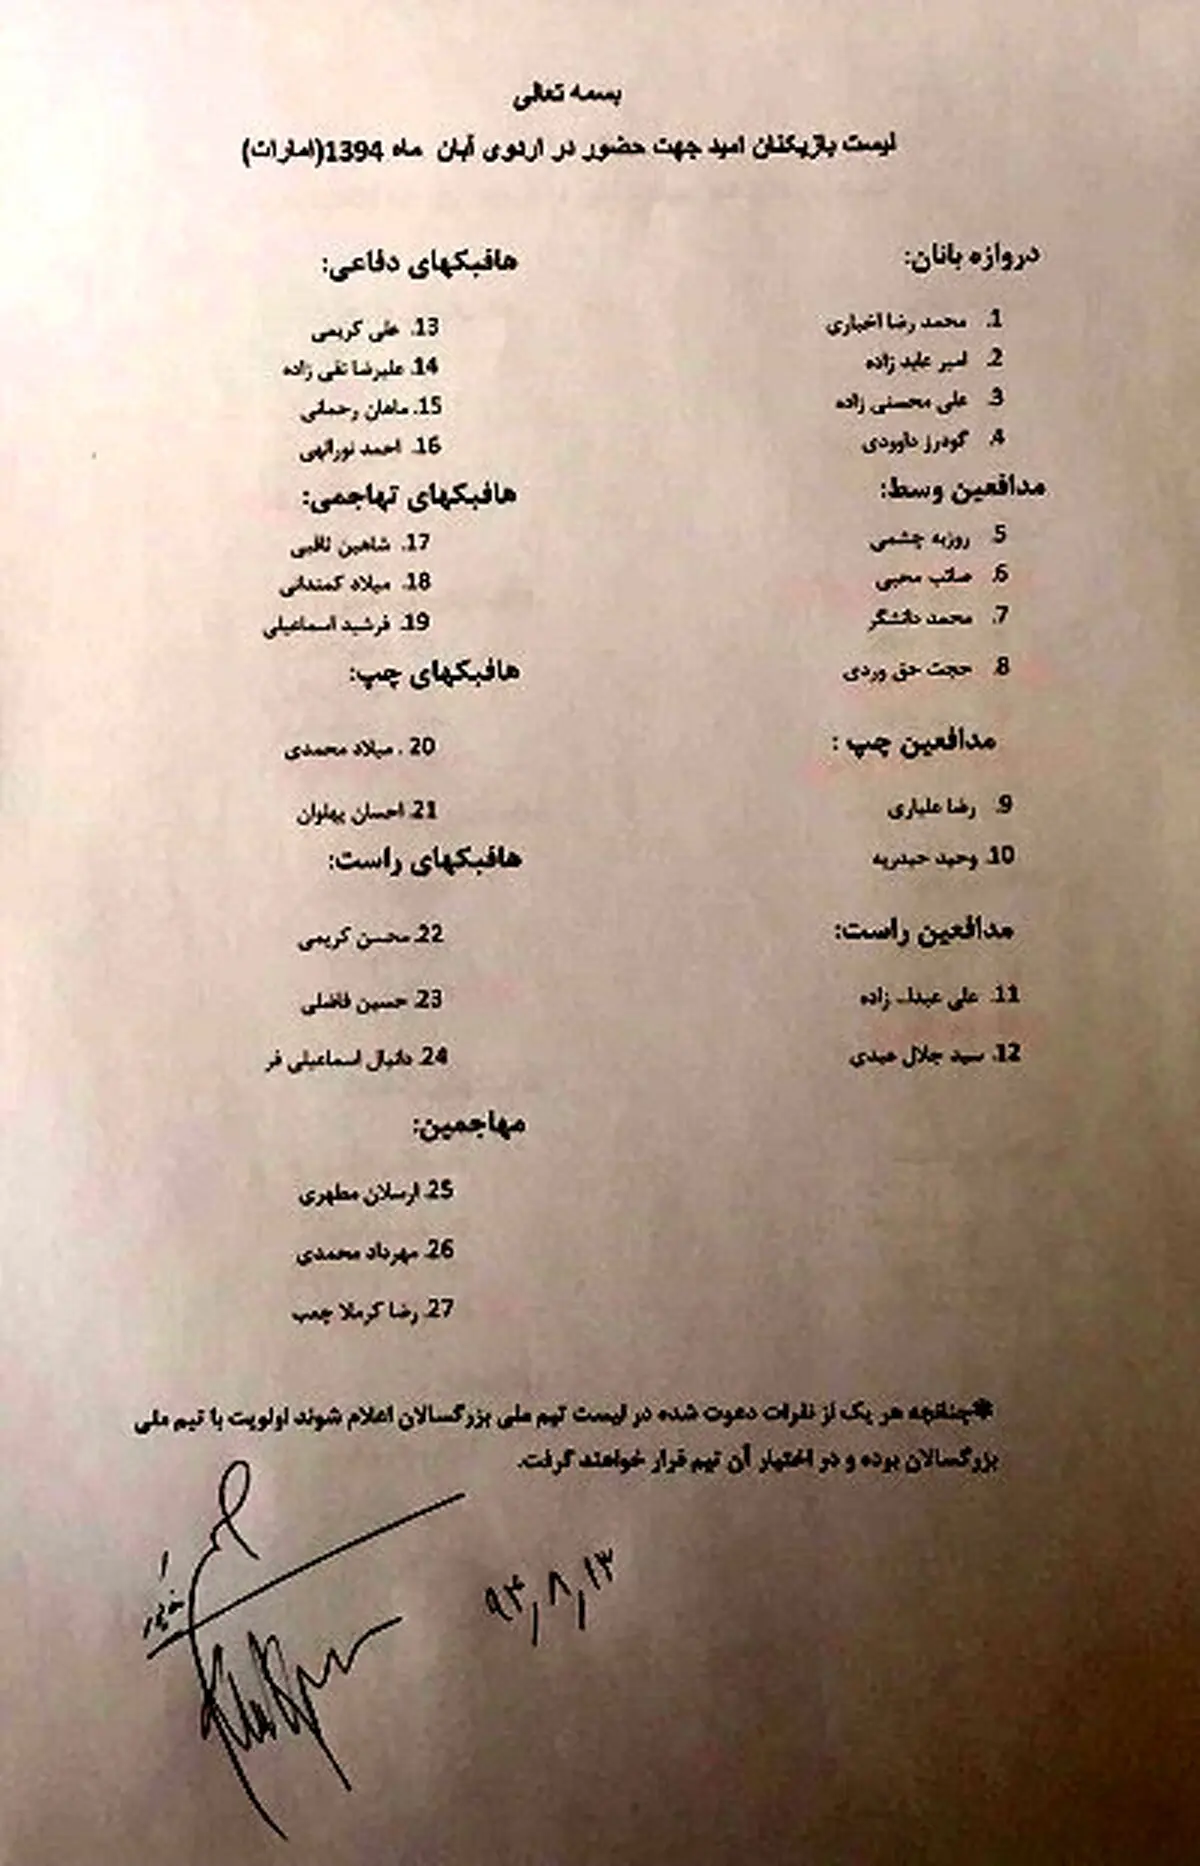 بسمه تعالی
لیست بازیکنان امید جهت حضور در اردوی آبان ماه 1394(امارات)
دروازه بانان:
1. محمد رضا اخباری
2. امیر عابد زاده
3. علی محسنی زاده
4. گودرز داوودی
مدافعین وسط:
5. روزبه چشمی
6. صائب محبی
7. محمد دانشگر
8. حجت حق وردی
مدافعین چپ :
9. رضا علیاری
10. وحید حیدریه
مدافعین راست:
11. علی عبدا.. زاده
12. سید جلال عبدی
هافبکهای دفاعی:
13. علی کریمی
14. علیرضا نقی زاده
15. ماهان رحمانی
16. احمد نورالهی
هافبکهای تهاجمی:
17. شاهین ثاقبی
18. میلاد کمندانی
19. فرشید اسماعیلی
هافبکهای چپ:
20 . میلاد محمدی
21. احسان پهلوان
هافبکهای راست:
22. محسن کریمی
23. حسین فاضلی
24. دانیال اسماعیلی فر
مهاجمین:
25. ارسلان مطهری
26. مهرداد محمدی
27. رضا کرملا چعب
*چنانچه هر یک از نفرات دعوت شده در لیست تیم ملی بزرگسالان اعلام شوند اولویت با تیم ملی
بزرگسالان بوده و در اختیار آن تیم قرار خواهند گرفت.
۹۴,۸,۱۳